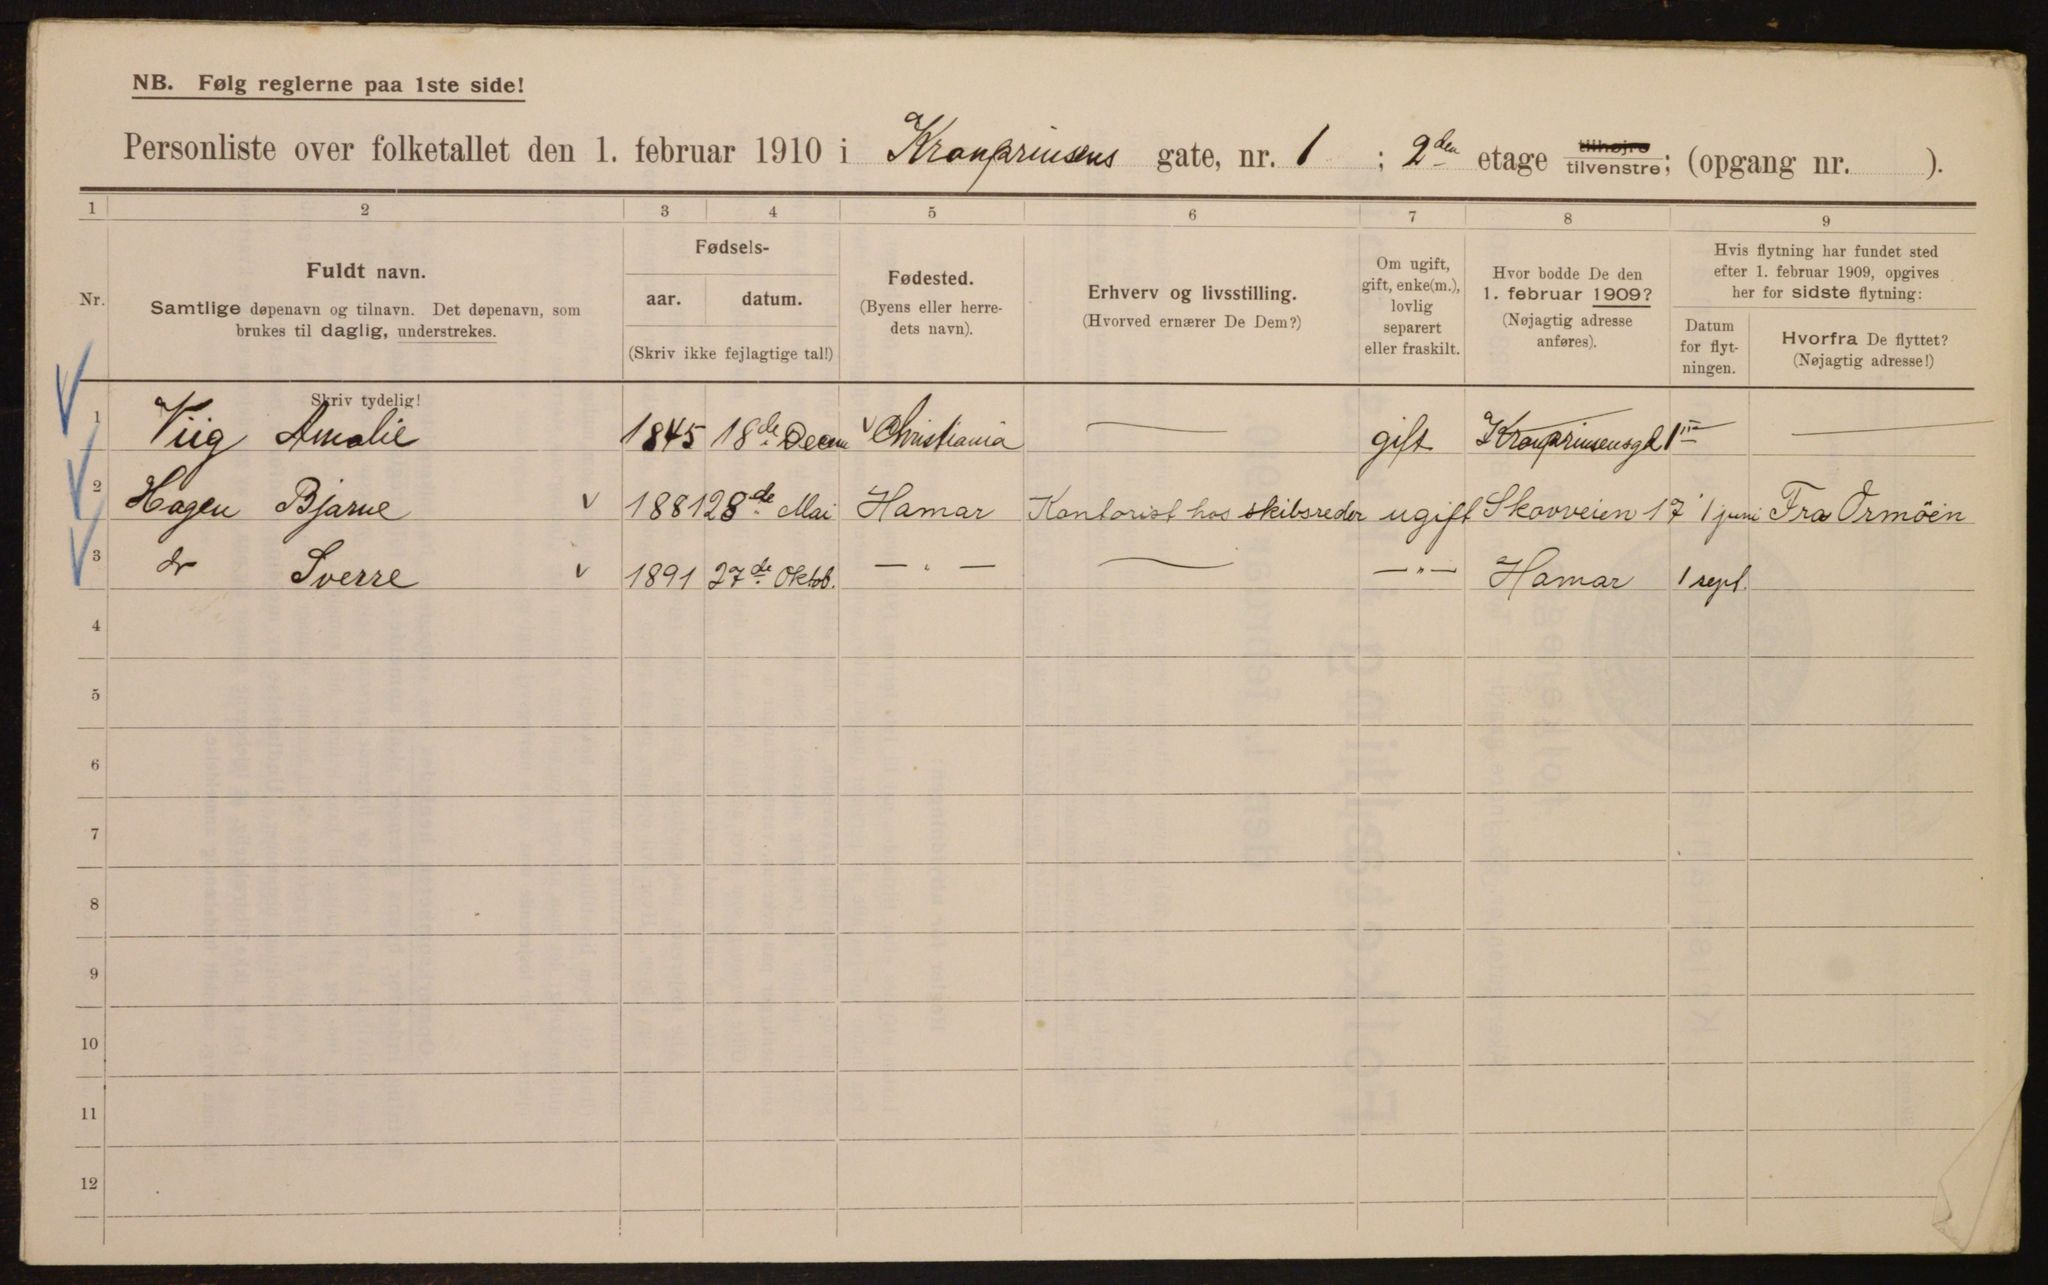 NB. Følg reglerne paa 1ste side!
Personliste over folketallet den 1. februar 1910 i Kronprinsens gate, nr. 1 ; 2den etage tilhøjre tilvenstre; (opgang nr. ).
1 2 3 4 5 6 7 8 9
Nr.
Fuldt navn.
Samtlige døpenavn og tilnavn. Det døpenavn, som
brukes til daglig, understrekes.
Skriv tydelig!
Fødsels-
aar. datum.
(Skriv ikke fejlagtige tal!)
Fødested.
(Byens eller herre-
dets navn).
Erhverv og livsstilling.
(Hvorved ernærer De Dem?)
Om ugift,
gift, enke(m.),
lovlig
separert
eller fraskilt.
Hvor bodde De den
1. februar 1909?
(Nøjagtig adresse
anføres).
Hvis flytning har fundet sted
efter 1. februar 1909, opgives
her for sidste flytning:
Datum
for flyt-
ningen.
Hvorfra De flyttet?
(Nøjagtig adresse!)
1 Viig Amalie 1845 18de Decem Christiania — gift Kronprinsensgd 1 —
2 Hagen Bjarne 1881 28de Mai Hamar Kontorist hos skibsreder ugift Skovveien 17 1 juni Fra Ormöen
3 do Sverre 1891 27de Oktob. — " — — — " — Hamar 1 sept.
4
5
6
7
8
9
10
11
12